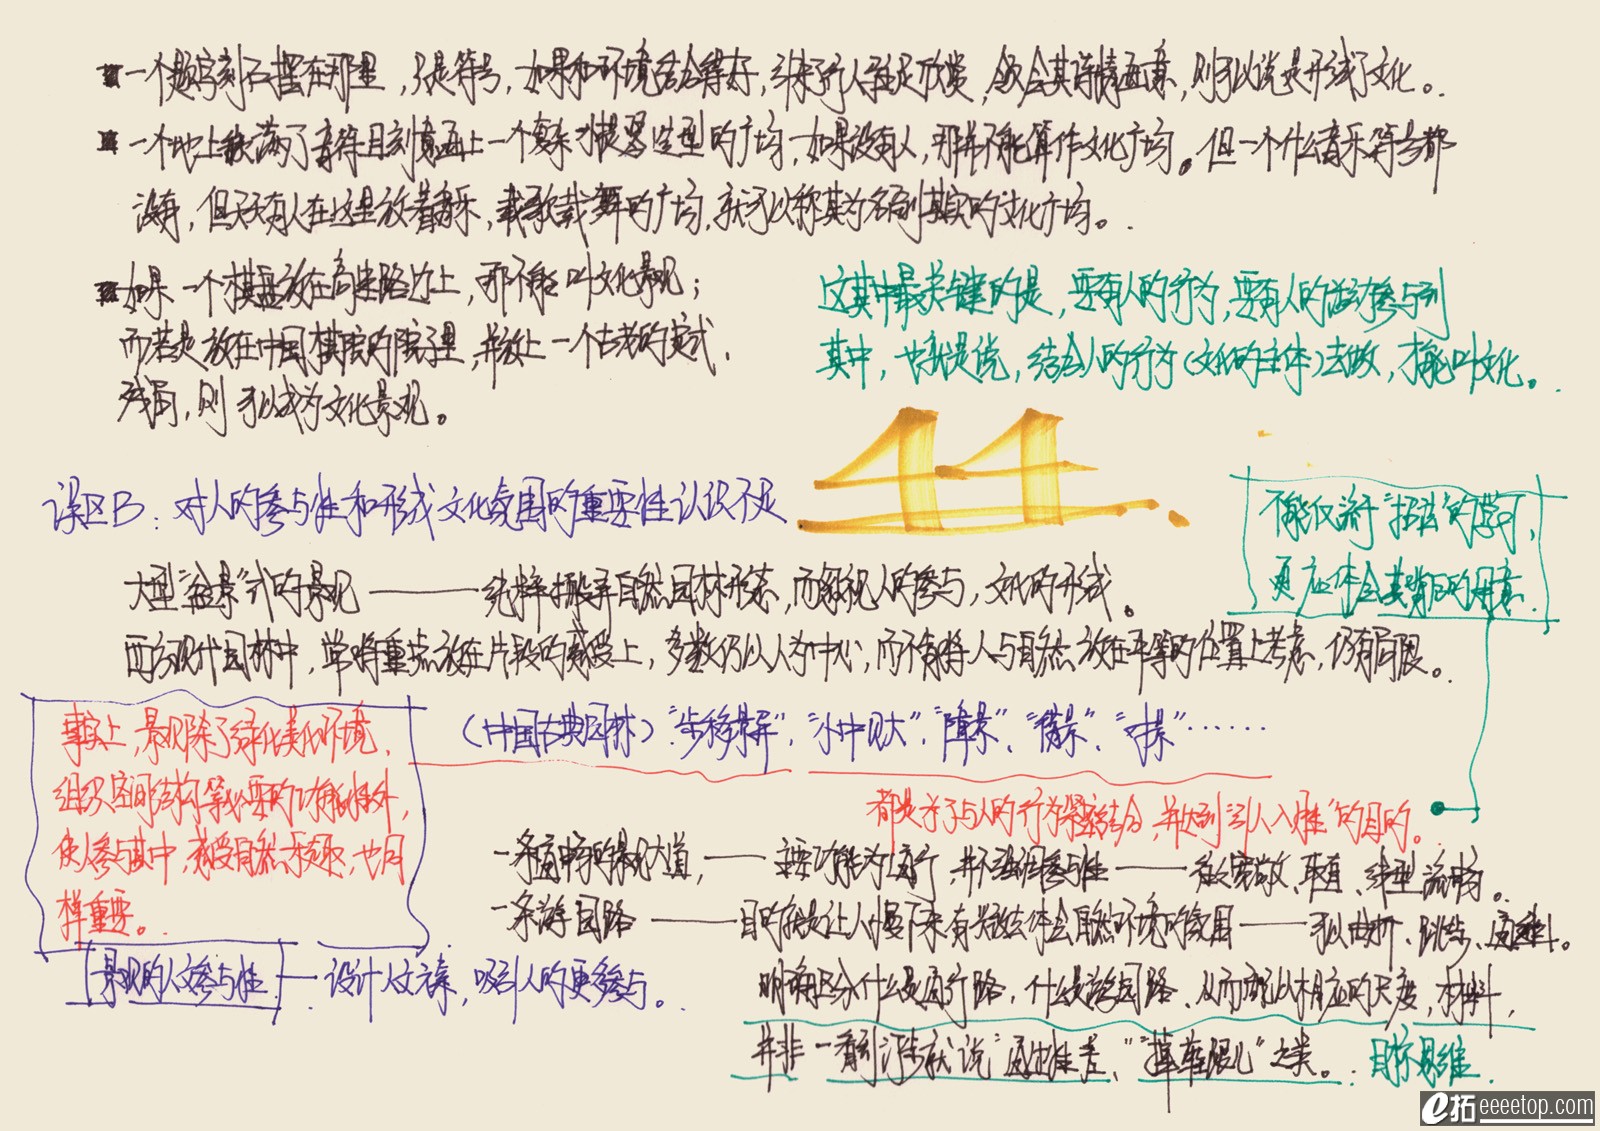 一个题写刻石摆在那里，只是符号，如果和环境结合得好，引来了行人驻足欣赏，体会其诗情画意，则可以说是形成了文化。
一个地上铺满了音符且刻意画上一个复杂乐器造型的广场，如果没有人，那并不能算作文化广场。但一个什么音乐符号都
没有，但天天有人在这里放着音乐，载歌载舞的广场，就可以称其为名副其实的文化广场。
如果一个棋盘放在高速路边上，那不能叫文化景观；
而若是放在中国棋院的院子里，并放上一个古老的实式
残局，则可以成为文化景观。
这其中最关键的是，要有人的行为，要有人的活动参与到
其中，也就是说，结合人的行为（文化的主体）去做，才能叫文化。
误区B：对人的参与性和形成文化氛围的重要性认识不足
44
不能仅流于“招法”的学习，
更应体会其背后的用意
大型“盆景”式的景观——纯粹搬弄自然园林形态，而忽视人的参与，文化的形成。
西方现代园林中，常将重点放在片段的感受上，多数仍以人为中心，而不肯将人与自然放在平等的位置上考虑，仍有局限。
（中国古典园林）“步移景异”、“小中见大”、“障景”、“借景”、“对景”……
都是为了与人的行为紧密结合，并达到“引人入胜”的目的。
事实上，景观除了绿化美化环境、
组织空间结构等必要的功能性外，
使人参与其中，感受自然乐趣，也同
样重要。
景观的人文参与性——设计人文元素，吸引人的更多参与。
一条宽中的景观大道，——主要功能为通行，并不强调参与性——故宽敞、平直、线型流畅。
一条游园路——目的就是让人慢下来有办法去体会自然环境的氛围——可以曲折、跳步、
明确区分什么是通行路，什么是游园路、从而配以相应的尺度，材料，
并非一看到汀步就说“通过性差”、“崴脚”之类。 目标思维
e拓 eeeetop.com